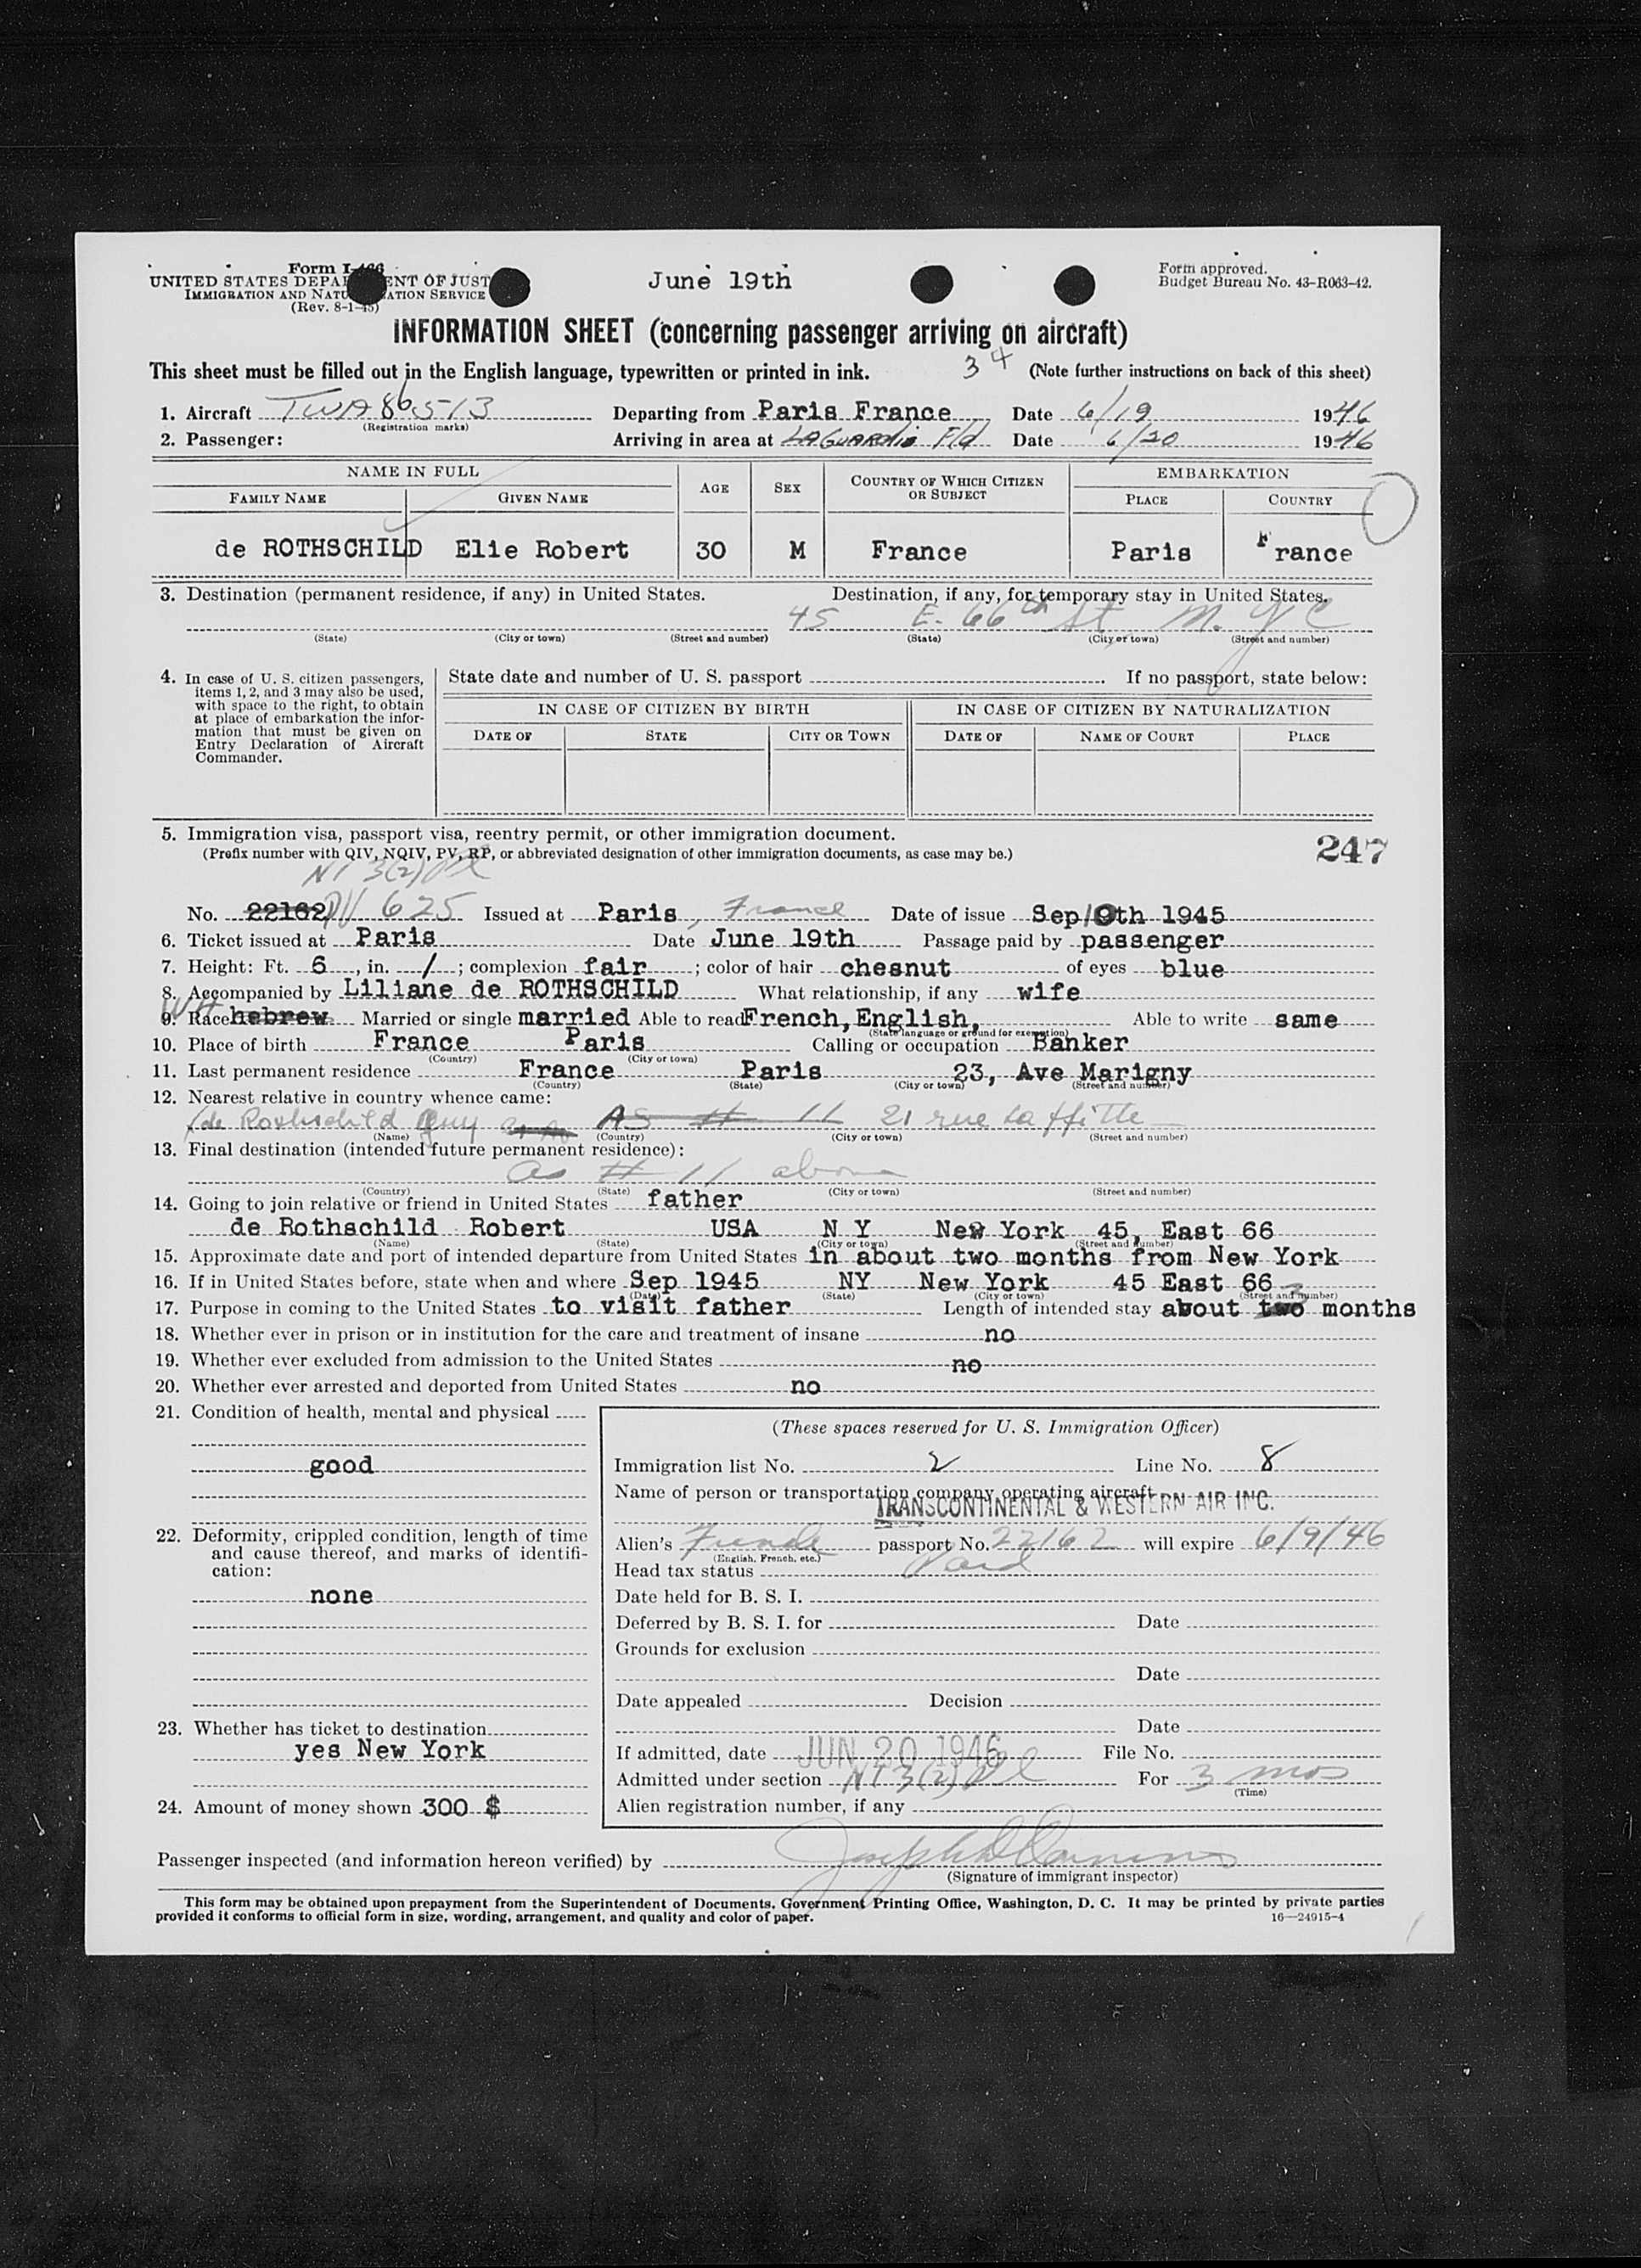 Form I-466
UNITED STATES DEPARTMENT OF JUST
IMMIGRATION AND NATURALIZATION SERVICE
(Rev. 8-1-45)
June 19th
Form approved.
Budget Bureau No. 43-R063-42.
INFORMATION SHEET (concerning passenger arriving on aircraft)
This sheet must be filled out in the English language, typewritten or printed in ink. 34 (Note further instructions on back of this sheet)
1. Aircraft TWA 86513 Departing from Paris France Date 6/19 1946
(Registration marks)
2. Passenger: Arriving in area at LAGUARdia Fld Date 6/20 1946
NAME IN FULL AGE SEX COUNTRY OF WHICH CITIZEN OR SUBJECT EMBARKATION
FAMILY NAME GIVEN NAME PLACE COUNTRY
de ROTHSCHILD Elie Robert 30 M France Paris France
3. Destination (permanent residence, if any) in United States. Destination, if any, for temporary stay in United States.
45 E. 66th St N.Y.C
(State) (City or town) (Street and number) (State) (City or town) (Street and number)
4. In case of U. S. citizen passengers, items 1, 2, and 3 may also be used, with space to the right, to obtain at place of embarkation the information that must be given on Entry Declaration of Aircraft Commander.
State date and number of U. S. passport If no passport, state below:
IN CASE OF CITIZEN BY BIRTH IN CASE OF CITIZEN BY NATURALIZATION
DATE OF STATE CITY OR TOWN DATE OF NAME OF COURT PLACE
5. Immigration visa, passport visa, reentry permit, or other immigration document. 247
(Prefix number with QIV, NQIV, PV, RP, or abbreviated designation of other immigration documents, as case may be.)
NI 3(2)
No. 22162 PV 625 Issued at Paris, France Date of issue Sep 10th 1945
6. Ticket issued at Paris Date June 19th Passage paid by passenger
7. Height: Ft. 6, in. 1; complexion fair; color of hair chesnut of eyes blue
8. Accompanied by Liliane de ROTHSCHILD What relationship, if any wife
WH
9. Race hebrew Married or single married Able to read French, English, Able to write same
(State language or ground for exemption)
10. Place of birth France Paris Calling or occupation Banker
(Country) (City or town)
11. Last permanent residence France Paris 23, Ave Marigny
(Country) (State) (City or town) (Street and number)
12. Nearest relative in country whence came:
de Rothschild Guy AS # 11 21 rue Laffitte
(Name) (Country) (City or town) (Street and number)
13. Final destination (intended future permanent residence):
as # 11 above
(Country) (State) (City or town) (Street and number)
14. Going to join relative or friend in United States father
de Rothschild Robert USA N Y New York 45, East 66
(Name) (State) (City or town) (Street and number)
15. Approximate date and port of intended departure from United States in about two months from New York
16. If in United States before, state when and where Sep 1945 NY New York 45 East 66
(Date) (State) (City or town) (Street and number)
17. Purpose in coming to the United States to visit father Length of intended stay about two 3 months
18. Whether ever in prison or in institution for the care and treatment of insane no
19. Whether ever excluded from admission to the United States no
20. Whether ever arrested and deported from United States no
21. Condition of health, mental and physical
good
22. Deformity, crippled condition, length of time and cause thereof, and marks of identification:
none
23. Whether has ticket to destination
yes New York
24. Amount of money shown 300 $
(These spaces reserved for U. S. Immigration Officer)
Immigration list No. 2 Line No. 8
Name of person or transportation company operating aircraft
TRANSCONTINENTAL & WESTERN AIR INC.
Alien's French passport No. 22162 will expire 6/9/46
(English, French, etc.)
Head tax status Paid
Date held for B. S. I.
Deferred by B. S. I. for Date
Grounds for exclusion
Date
Date appealed Decision
Date
If admitted, date JUN 20 1946 File No.
Admitted under section NI 3(2) For 3 mos
(Time)
Alien registration number, if any
Passenger inspected (and information hereon verified) by
(Signature of immigrant inspector)
This form may be obtained upon prepayment from the Superintendent of Documents, Government Printing Office, Washington, D. C. It may be printed by private parties
provided it conforms to official form in size, wording, arrangement, and quality and color of paper. 16—24915-4